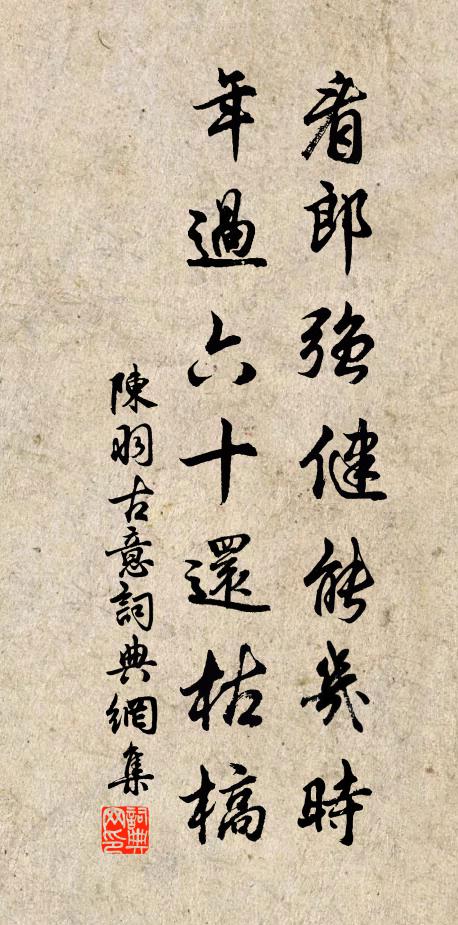 看郎強健能幾時
年過六十還枯槁
陳羽古意詞典網集
詞典
网印